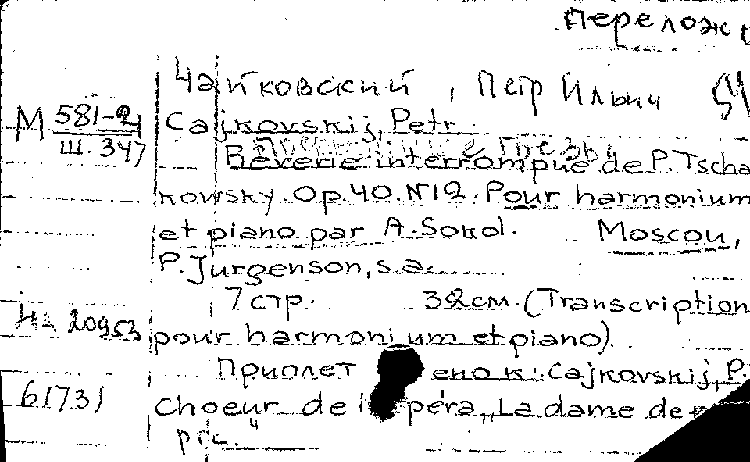 Перелож
Чайковский, Петр Ильич
М 581-2
Ш. 347
Cajkovskij, Petr.
Rêverie interrompue de P. Tscha
kowsky. Op. 40. N 12. Pour harmonium
et piano par A. Sokol. Moscou,
P. Jurgenson, s.a.
7 стр. 32 см. (Transcription
pour harmonium et piano)
20953
Приплет ено к: Cajkovskij, P.
61731
Choeur de l péra „La dame de
pic."